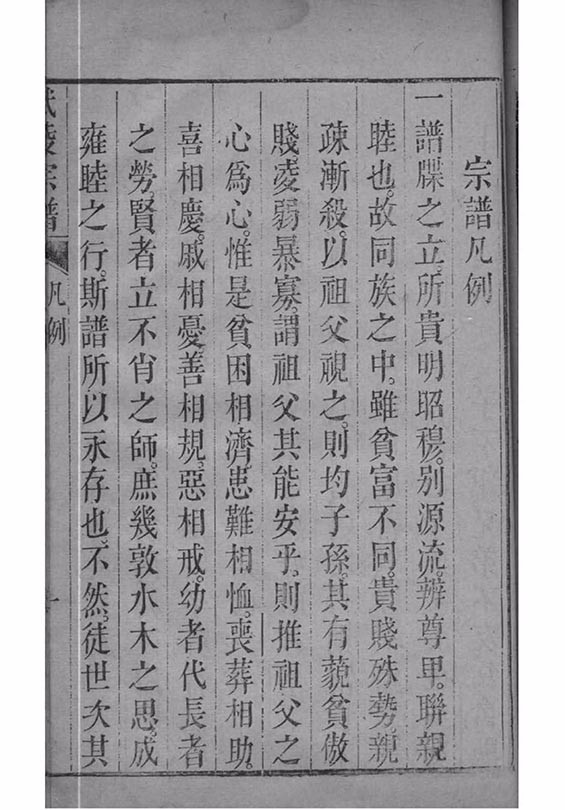 宗譜凡例
一譜牒之立。所貴明昭穆。別源流。辨尊卑。聯親
睦也。故同族之中。雖貧富不同。貴賤殊勢。親
疎漸殺。以祖父視之。則均子孫。其有藐貧傲
賤。凌弱暴寡。謂祖父其能安乎。則推祖父之
心為心。惟是貧困相濟。患難相恤。喪葬相助。
喜相慶。戚相憂。善相規。惡相戒。幼者代長者
之勞。賢者立不肖之師。庶幾敦水木之思。成
雍睦之行。斯譜所以永存也。不然。徒世次其
宗譜 凡例 一